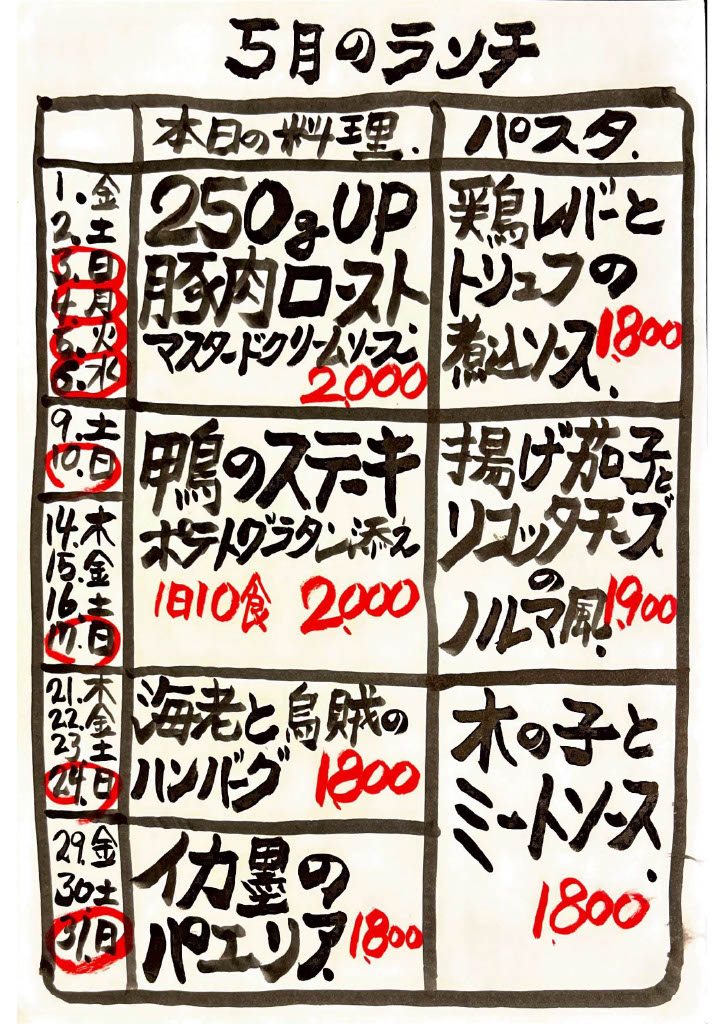 5月のランチ
本日の料理.
パスタ.
1.金
2.土
3.日
4.月
5.火
6.水
250gUP
豚肉ロースト
マスタードクリームソース.
2,000
鶏レバーと
トリュフの
煮込ソース.
1,800
9.土
10.日
14.木
15.金
16.土
17.日
鴨のステーキ
ポテトグラタン添え
1日10食 2,000
揚げ茄子と
リコッタチーズ
の
ノルマ風.
1,900
21.木
22.金
23.土
24.日
海老と烏賊の
ハンバーグ
1,800
木の子と
ミートソース.
1,800
29.金
30.土
31.日
イカ墨の
パエリア.
1,800